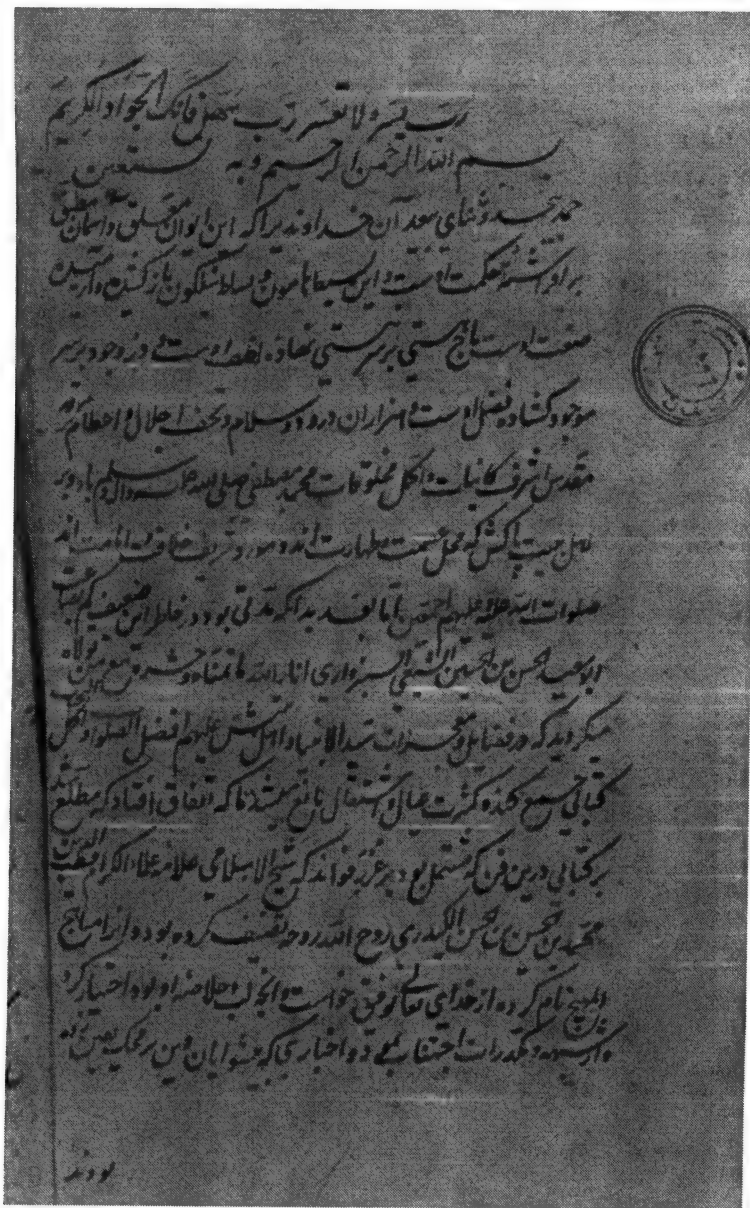 رب یسر ولا تعسر رب سهل فانک الجواد الکریم
بسم الله الرحمن الرحیم وبه نستعین
حمد بیحد و ثنای بیعد آن خداوندیرا که این ایوان معلق و آسمان مطبق
برافراشته حکمت اوست و این بسیط هامون و بساط نیلگون باز کشیده و آراسته
صنعت اوست تاج هستی بر سر هستی نهاده لطف اوست و در وجود بر سر
موجود کشاده فضل اوست و هزاران درود و سلام و تحف اجلال و اعظام بر
مقدس اشرف کاینات و اکمل مخلوقات محمد مصطفی صلی الله علیه و آله و سلم باد و بر
اهل بیت پاکش که محل عصمت و طهارت اند و مورد خلافت و امامت اند
صلوات الله علیه و علیهم اجمعین اما بعد بدانکه مدتی بود در خاطر این ضعیف کم بضاعت
ابو سعید الحسن بن الحسین الشیعی السبزواری اناله الله ما تمناه و حشره مع من تولاه
میگردید که در فضایل و معجزات سید الانبیا و اهل بیتش علیهم افضل الصلوات و اکمل التحیات
کتابی جمع کند و کثرت عیال و اشتغال مانع میشد تا که اتفاق افتاد که مطلع شد
بر کتابی درین فن که مشتمل بود بر غرر فواید که شیخ الاسلامی علامه علماء الکرام قطب الدین
محمد بن حسین بن حسن الکیدری روح الله روحه تصنیف کرده بود و آنرا مباهج
المهج نام کرده از خدای تعالی توفیق خواست و آنچه لب و خلاصه او بود اختیار کرد
و از شبهه و مکدرات اجتناب نموده و اخباری که پیشوایان دین بر محک یقین زده
بودند